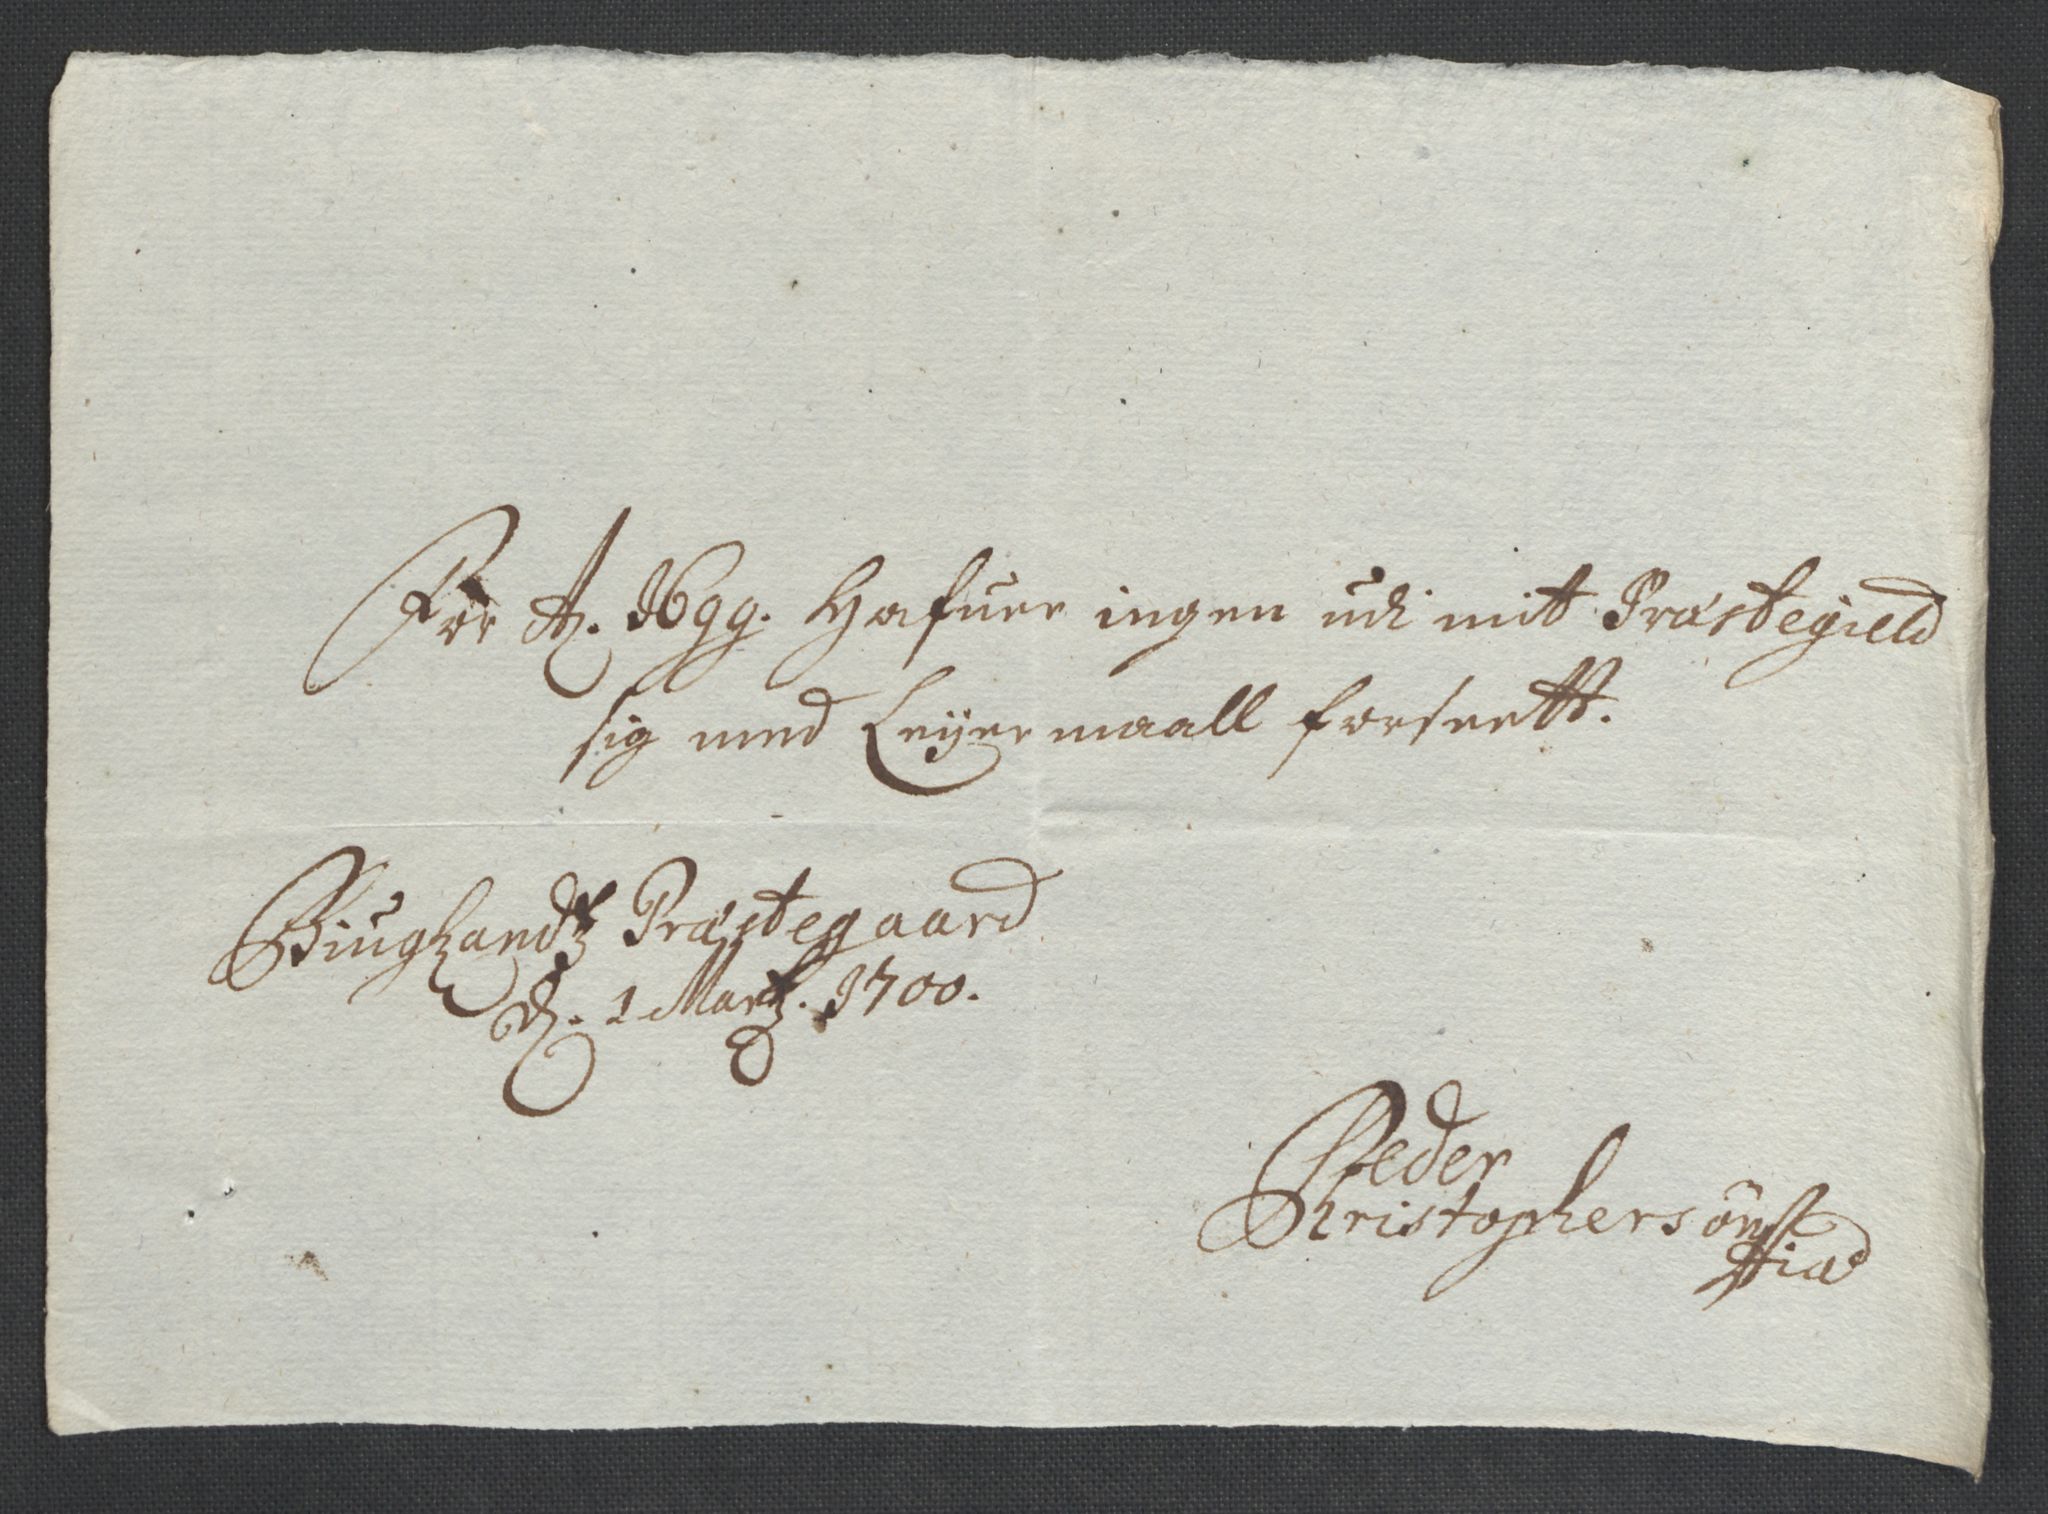 For A. 1699. Hafuer ingen udi mit Præstegield
sig med Leyermaall forseett.
Biuglandtz Præstegaard
d. 1 Martz. 1700.
Peder
Christophersøn
Stiad